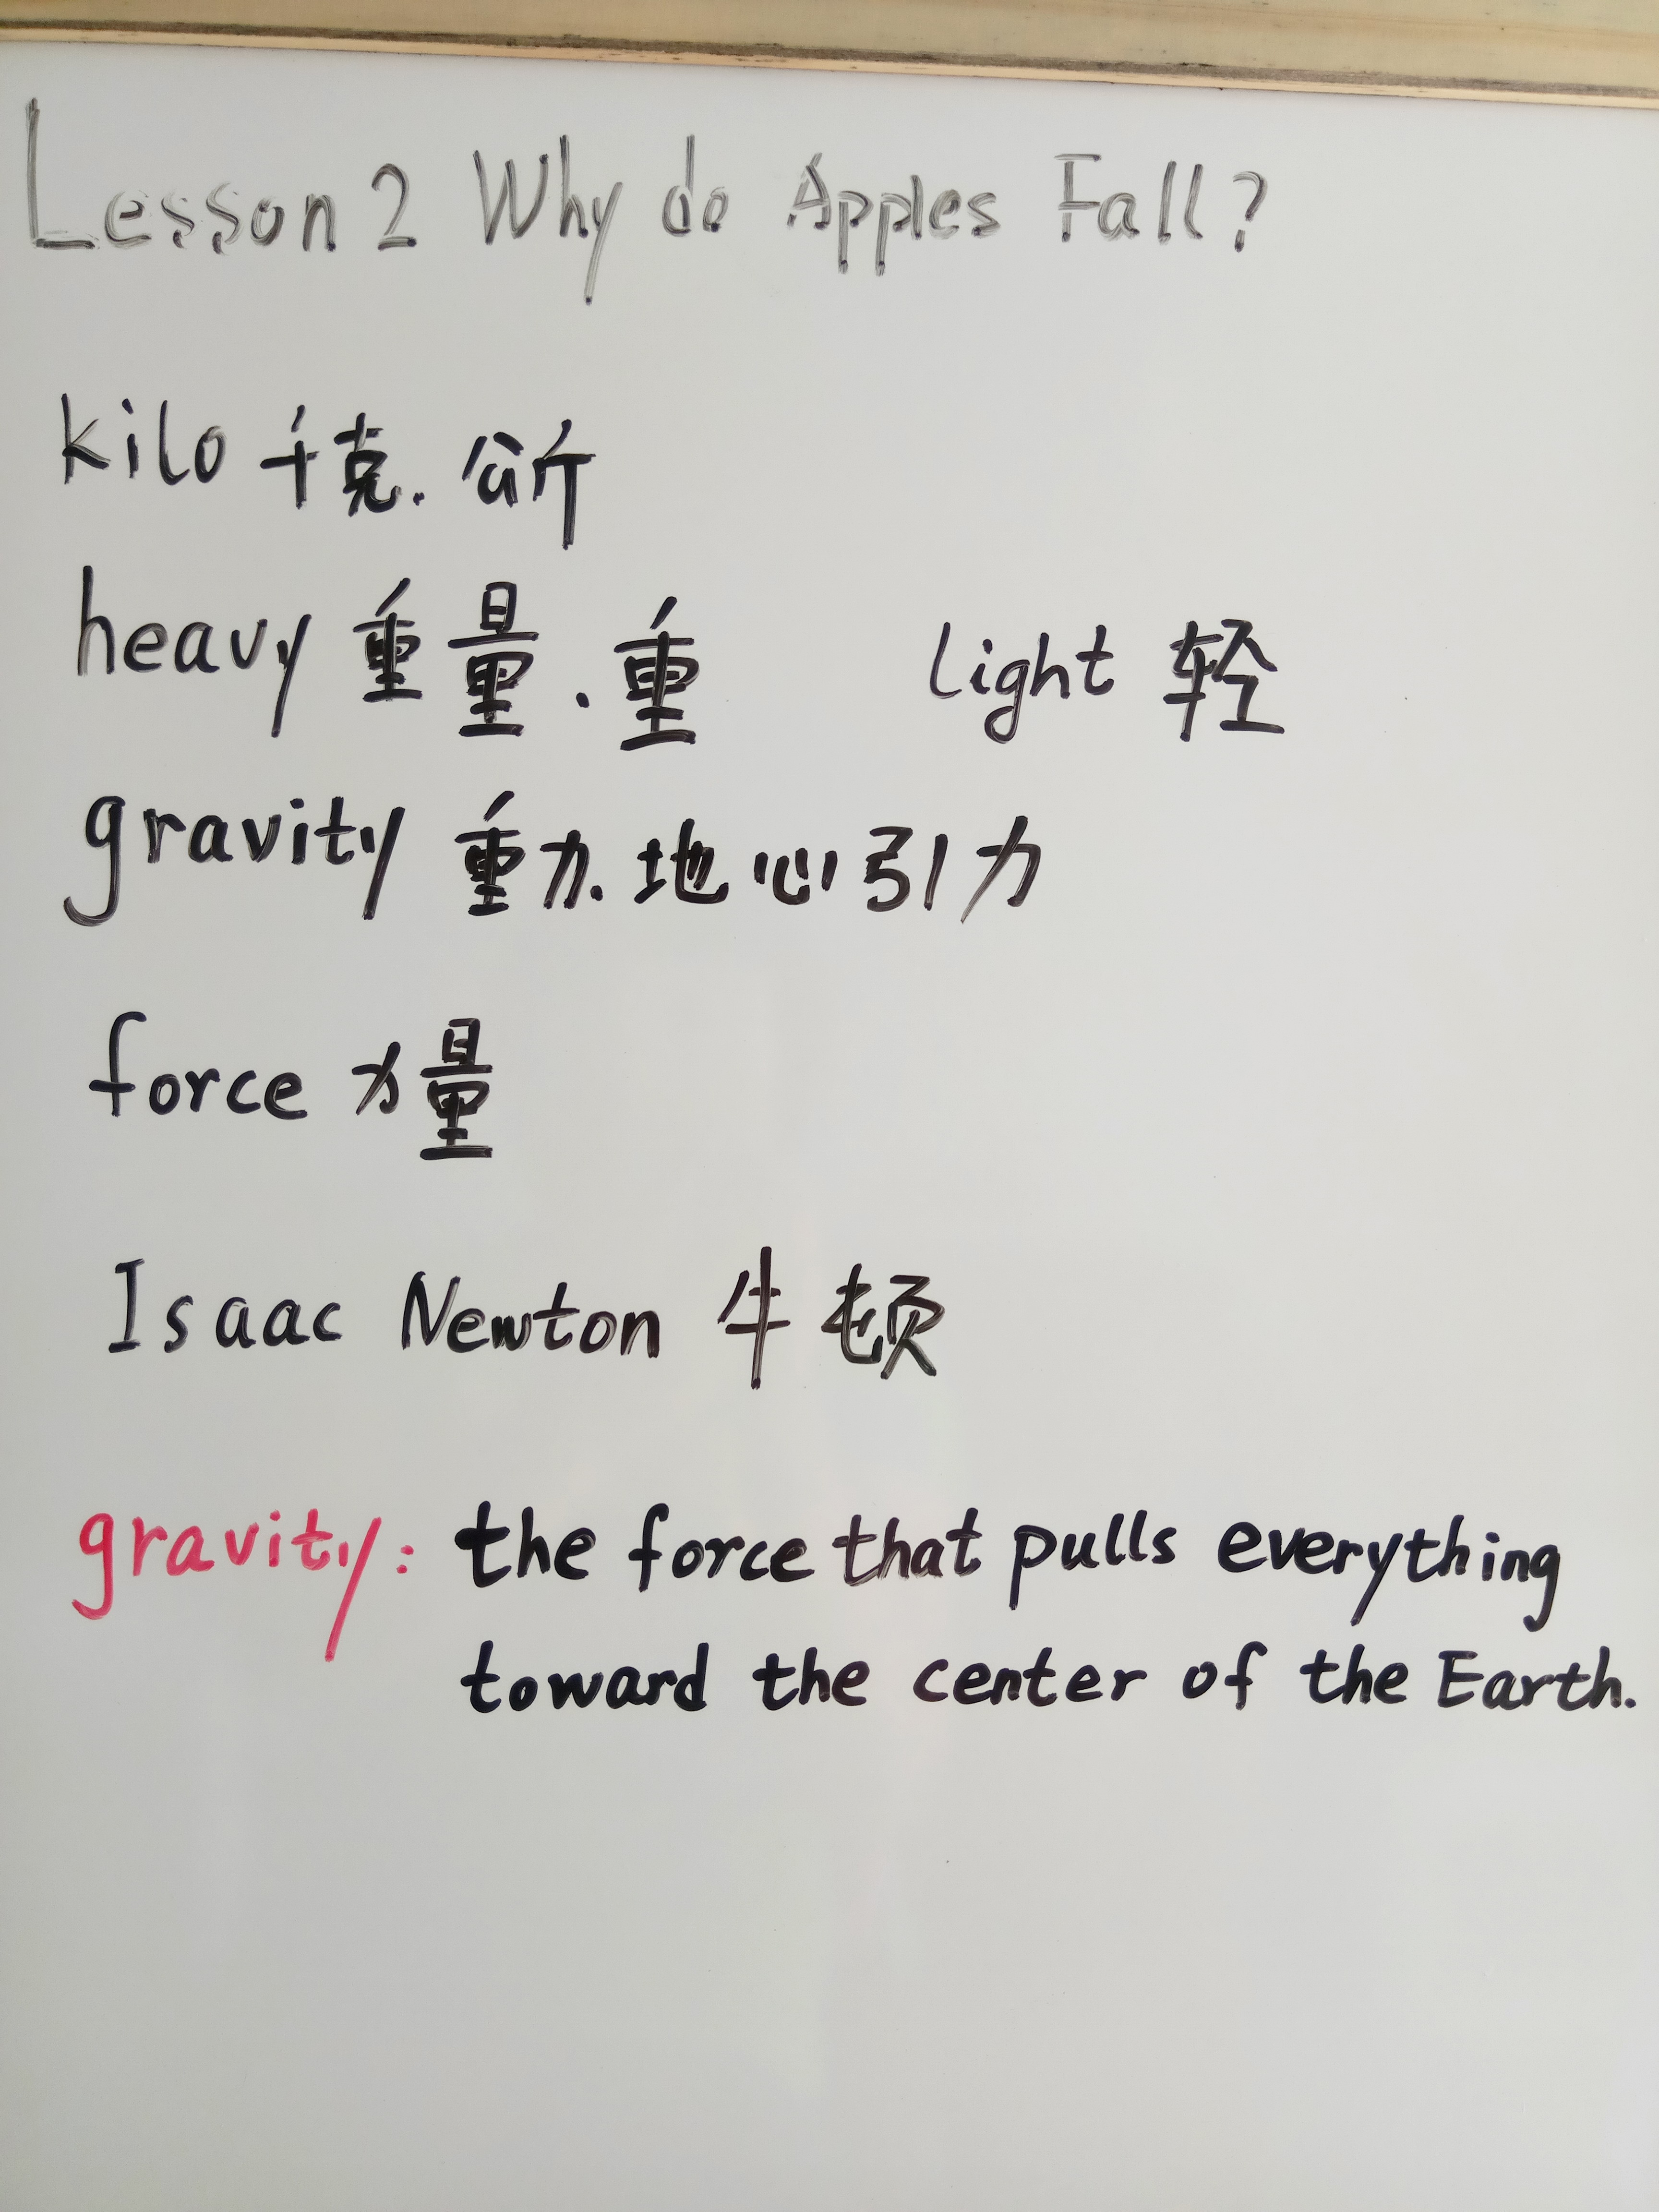 Lesson 2 Why do Apples Fall?
kilo 千克. 公斤
heavy 重量.重 light 轻
gravity 重力.地心引力
force 力量
Isaac Newton 牛顿
gravity: the force that pulls everything
toward the center of the Earth.